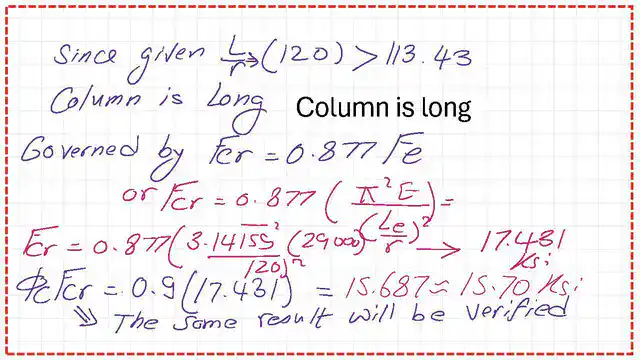 Since given L/r→(120) > 113.43
Column is Long Column is long
Governed by Fcr = 0.877 Fe
or Fcr = 0.877 (π²E/(Le/r)²) =
Fcr = 0.877(3.14155² (29000)/120)² → 17.431 Ksi
ΦcFcr = 0.9(17.431) = 15.687 ≈ 15.70 Ksi
⇒ The same result will be verified